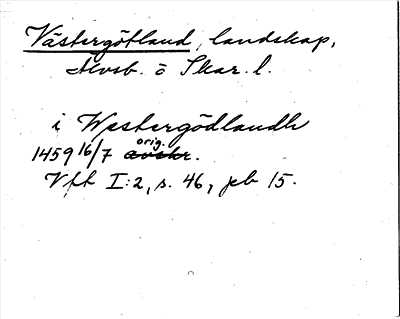 Västergötland, landskap,
Älvsb. o Skar. l.
i Westergödlandh
1459 16/7 orig. avskr.
Vft I:2, s. 46, jfb 15.